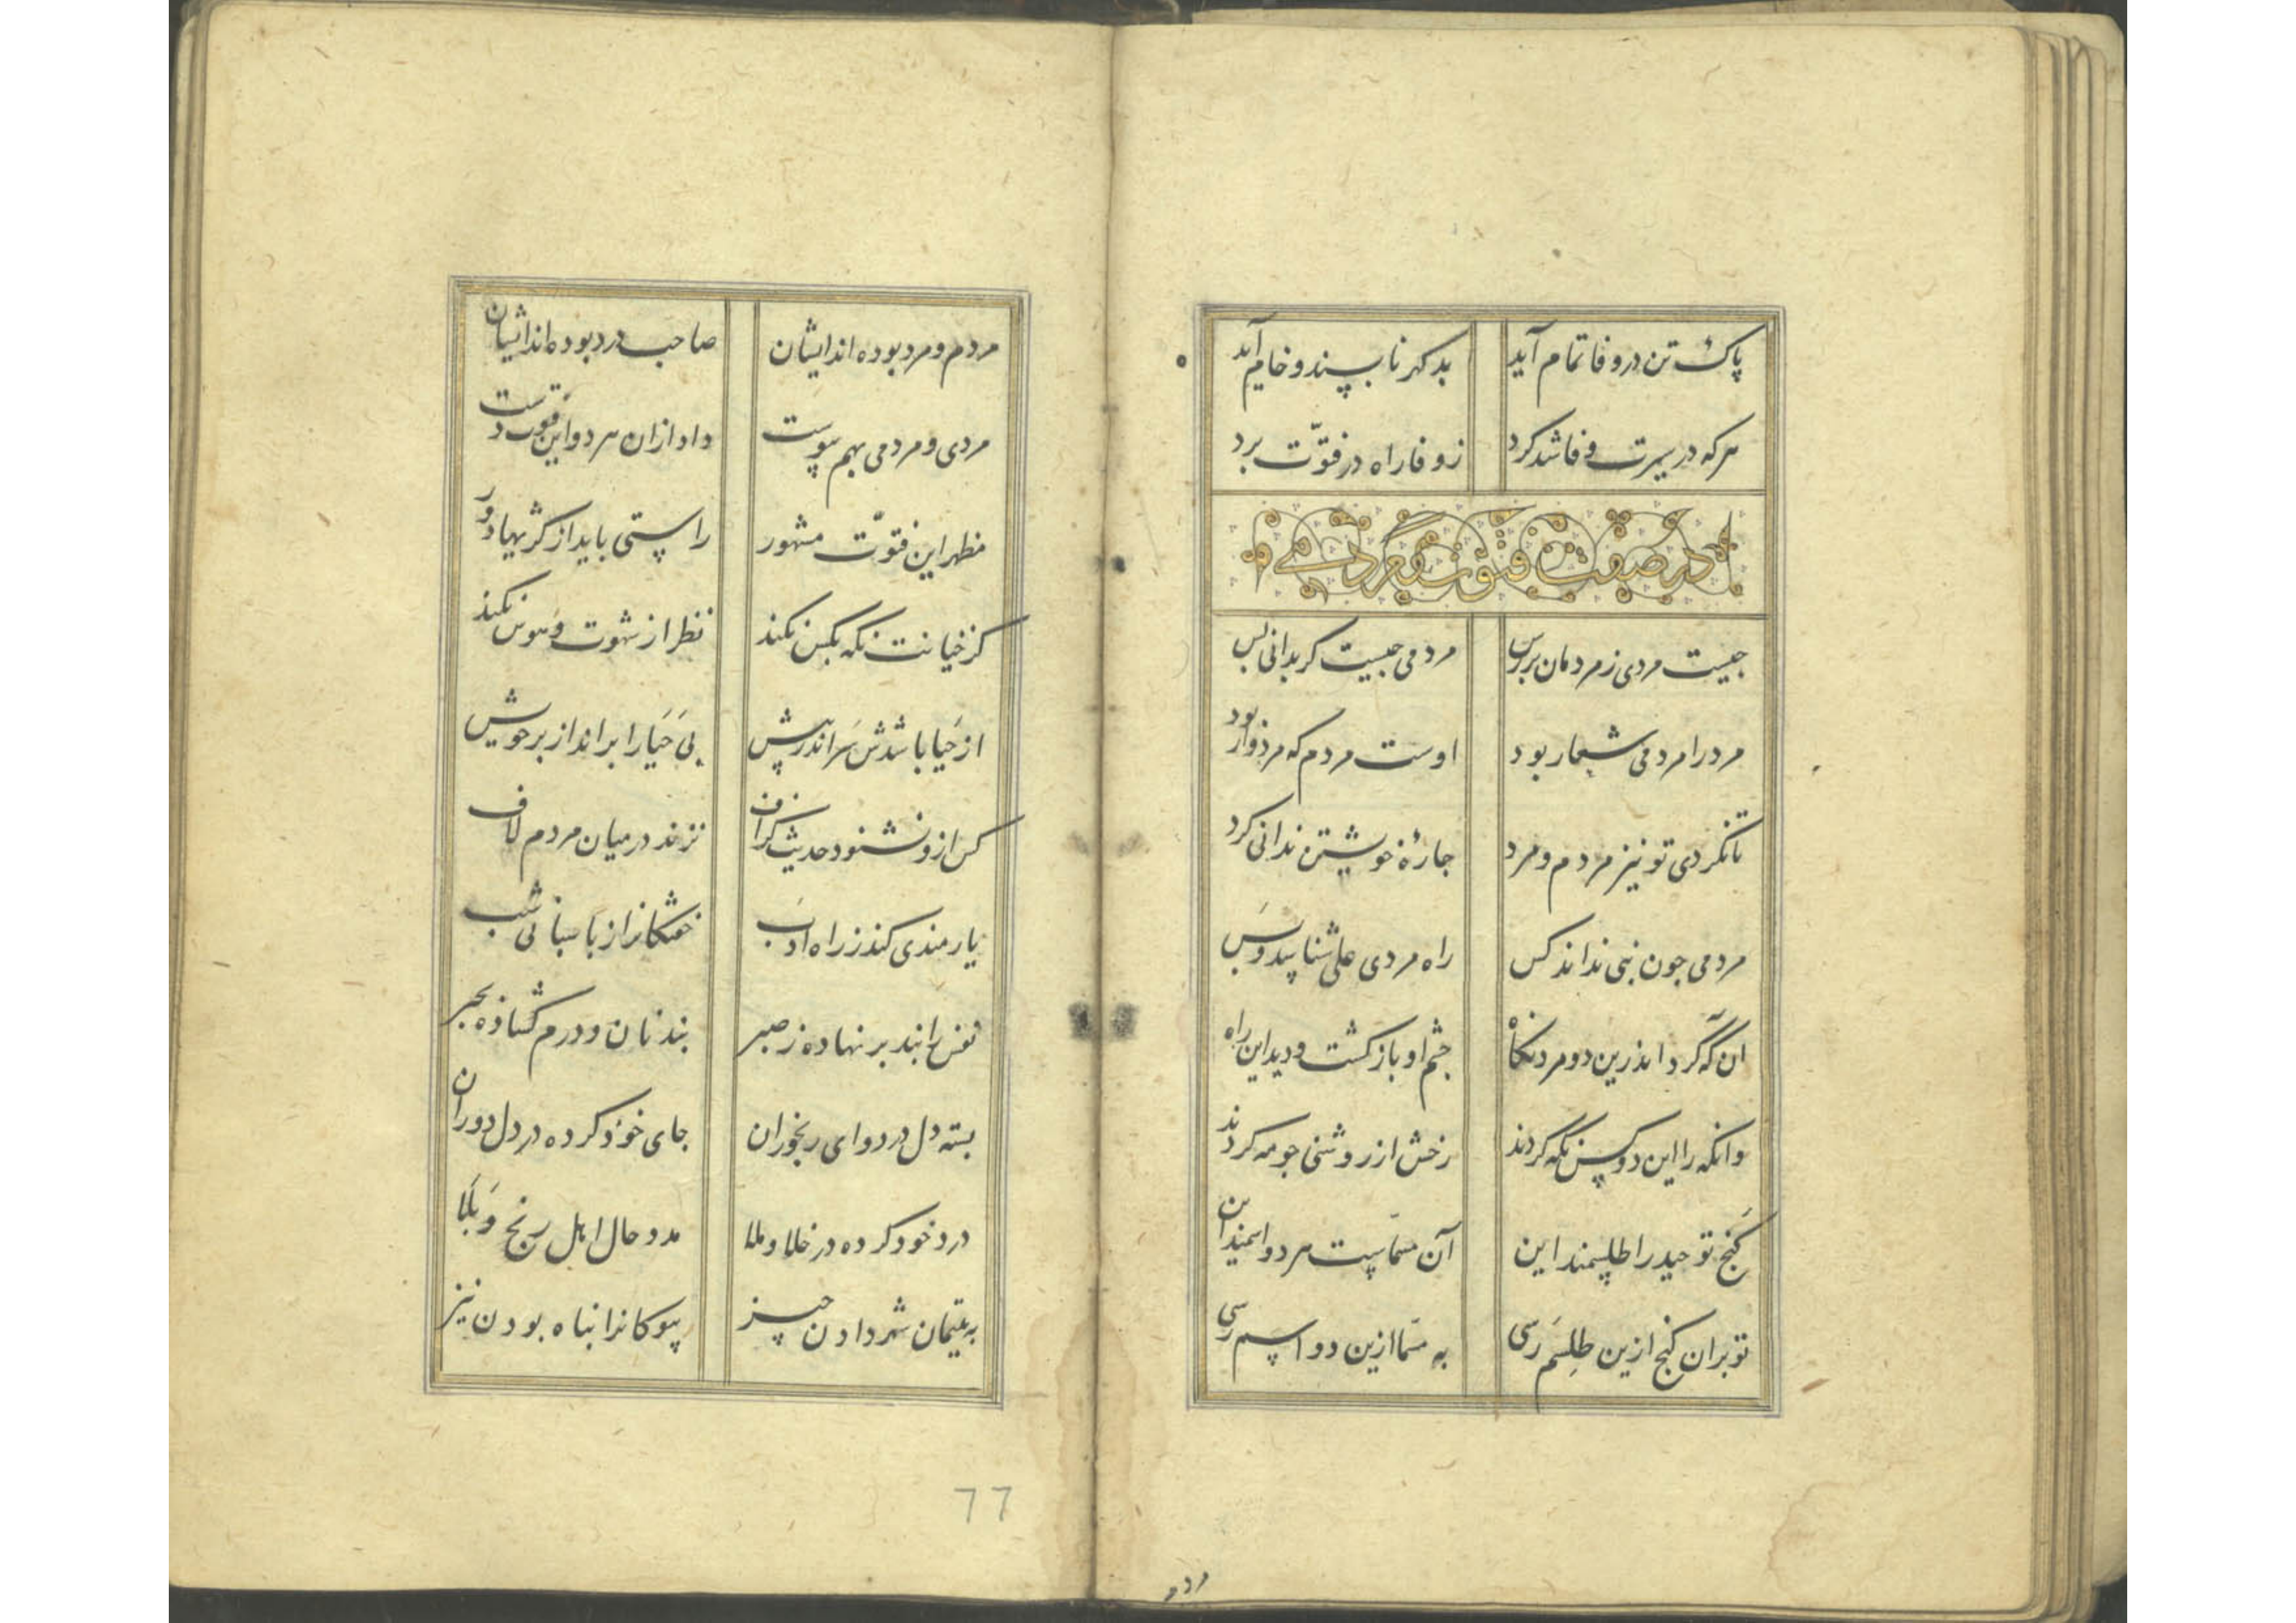 پاک تن در وفا تمام آید بد کهر ناپسند و خام آید
هر که در سیرت وفا شد کرد ز وفا راه در فتوّت برد
در صفت فتوت و مردمی
جیست مردی ز مردمان بررس مردمی جیست کر بدانی بس
مرد را مردمی شعار بود اوست مردم که مردوار بود
تا نکردی تو نیز مردم و مرد جارهٔ خویشتن ندانی کرد
مردمی جون نبی نداند کس راه مردی علی شناسد و بس
ان که کرد اندرین دو مرد نکاه جشم او باز کشت و دید این راه
وانکه را این دو کس نکه کردند رخش از روشنی جو مه کردند
کنج توحید را طلسمند این آن مسمّاست مرد و اسمند این
تو بران کنج ازین طلسم رسی به مسمّا ازین دو اسم رسی
مردم
مردم و مرد بوده اند ایشان صاحب درد بوده اند ایشان
مردی و مردمی بهم پیوست داد ازان هر دو این فتوت دست
مظهر این فتوّت مشهور راستی باید از کژیها دور
کز خیانت نکه بکس نکند نظر از شهوت و هوس نکند
از حیا باشدش سر اندر پیش بی حیا را براند از بر خویش
کس ازو نشنود حدیث کزاف نزند در میان مردم لاف
یارمندی کند ز راه ادب خفتکانرا ز پاسبانی شب
نفس را بند بر نهاده ز صبر بند نان و درم کشاده بجبر
بسته دل در دوای رنجوران جای خود کرده در دل دوران
درد خود کرده در خلا و ملا مدد حال اهل رنج و بلا
به یتیمان شهر دادن چیز بیوکانرا پناه بودن نیز
77